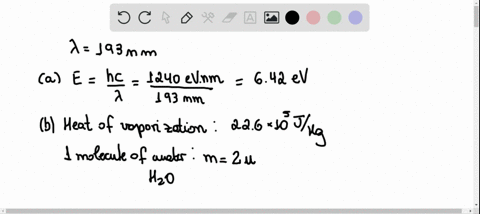 λ = 193 nm
(a) E = hc/λ = 1240 eV.nm/193 nm = 6.42 eV
(b) Heat of vaporization : 22.6 * 10⁵ J/Kg
1 molecule of water : m = 2u
H₂O